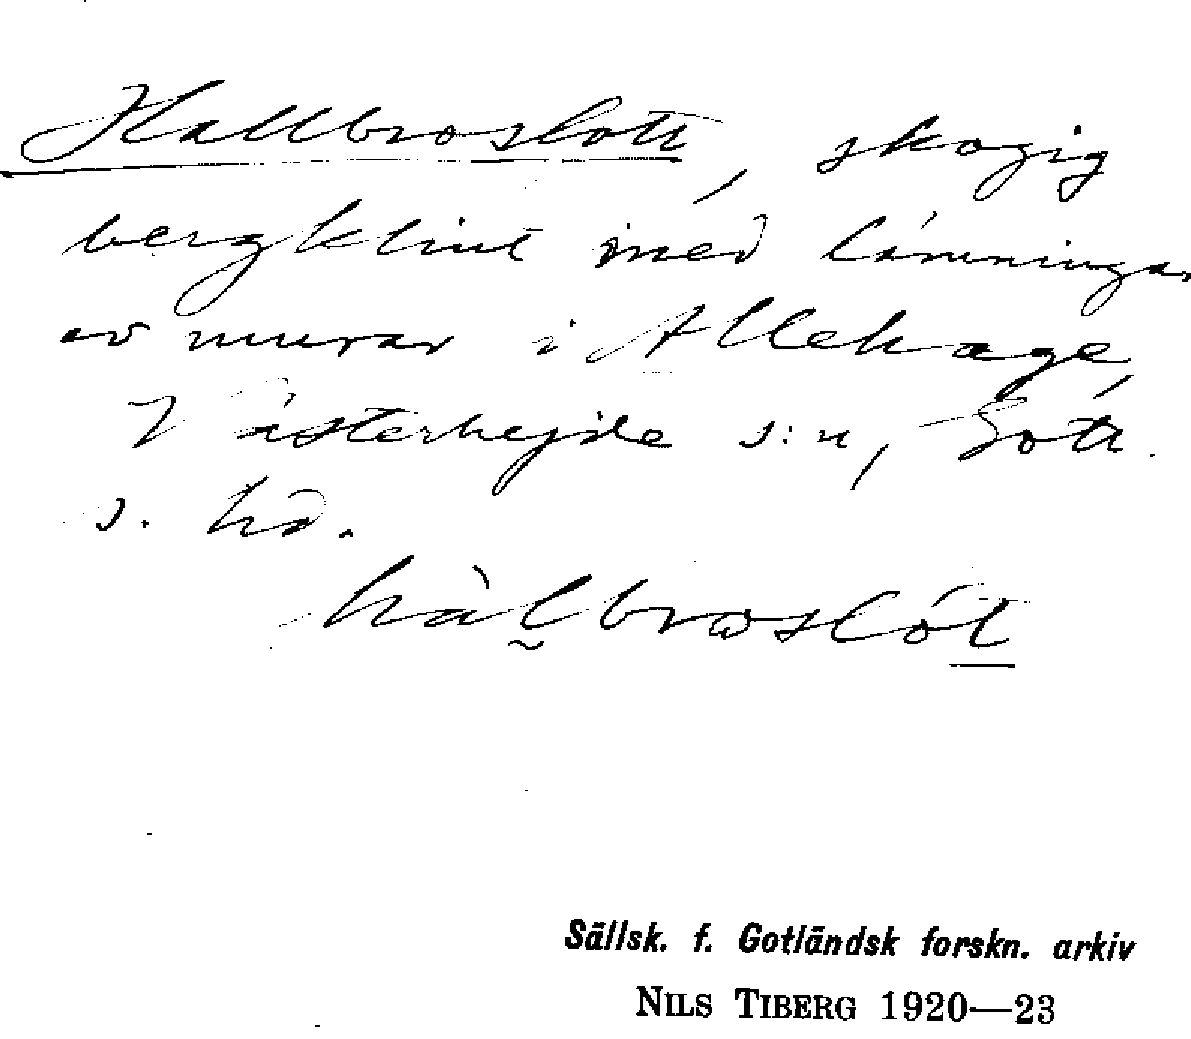 Hallbroslott, skogig
bergklint med lämningar
av murar i Allekage,
Västerhejde s:n, Gotl.
s. hd.
hàlbroslót
Sällsk. f. Gotländsk forskn. arkiv
NILS TIBERG 1920—23